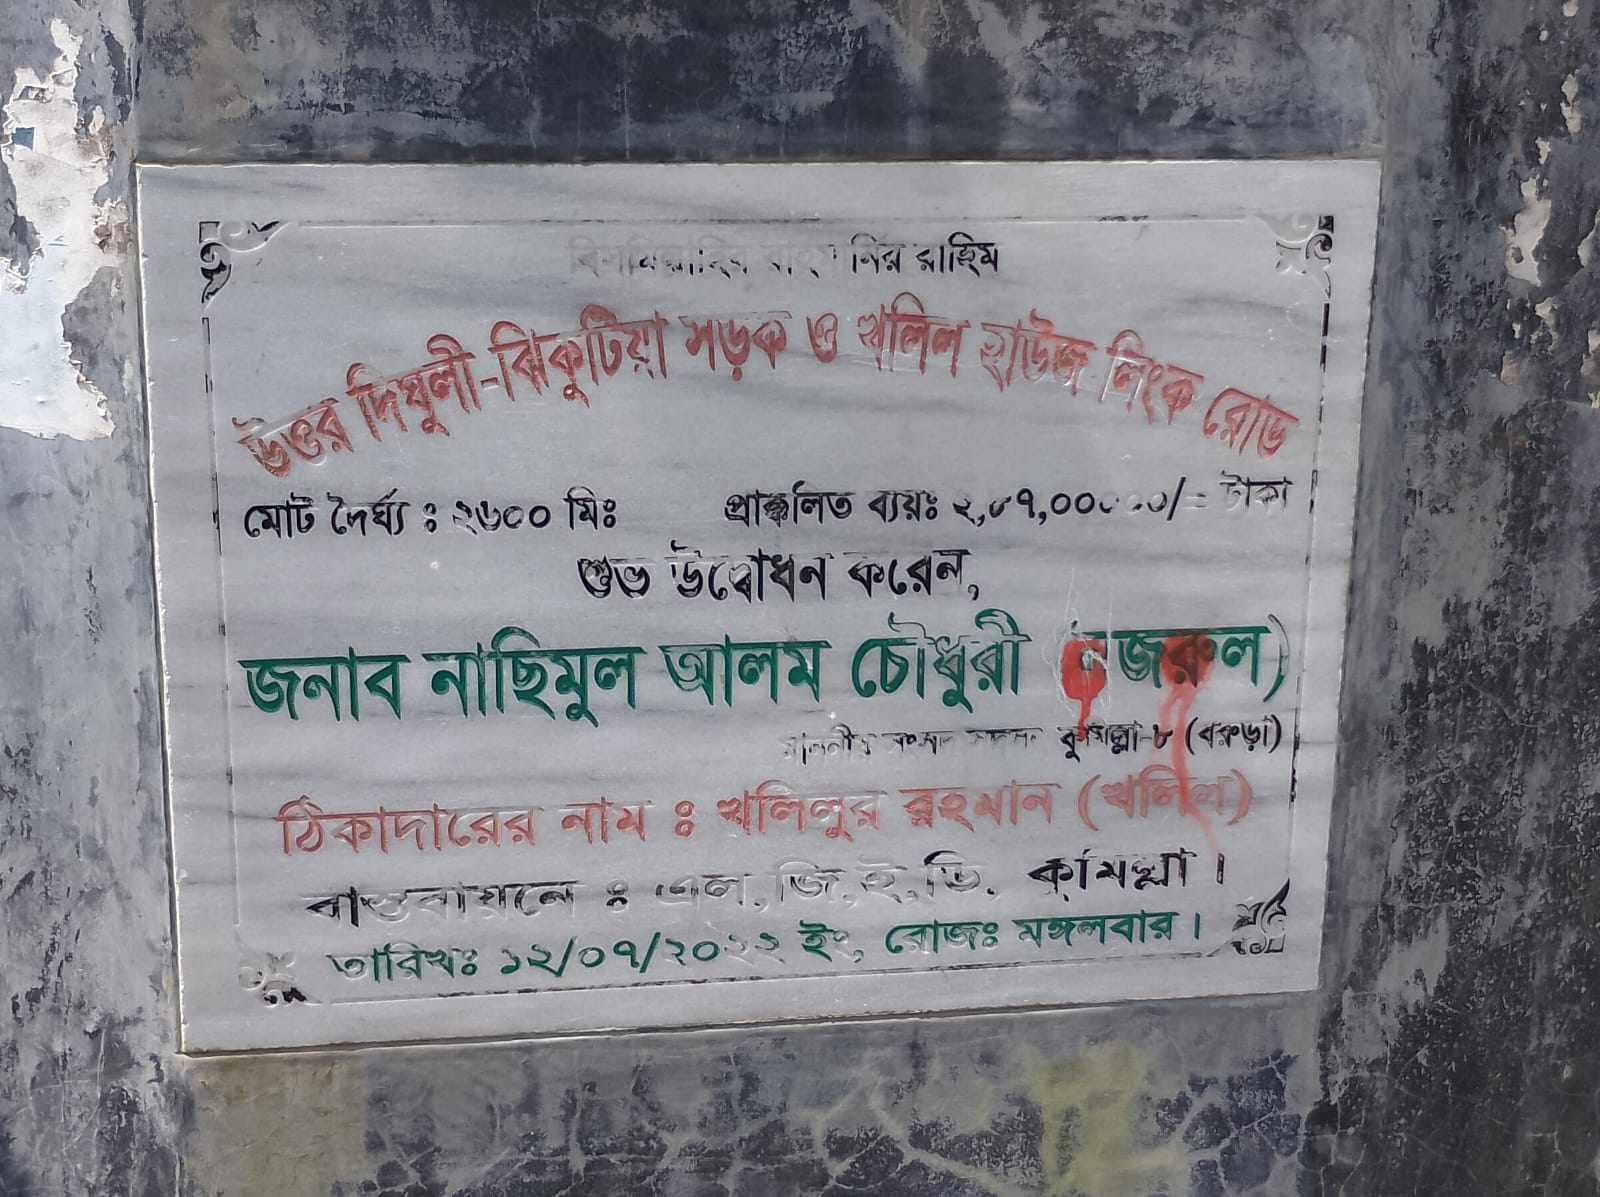 বিসমিল্লাহির রাহমানির রাহিম
উত্তর দিঘুলী-ঝিকুটিয়া সড়ক ও খলিল হাউজ লিংক রোড
মোট দৈর্ঘ্য : ২৬০০ মিঃ প্রাক্কলিত ব্যয়ঃ ২,৮৭,০০০০০/= টাকা
শুভ উদ্বোধন করেন,
জনাব নাছিমুল আলম চৌধুরী (নজরুল)
মাননীয় সংসদ সদস্য কুমিল্লা-৮ (বরুড়া)
ঠিকাদারের নাম : খলিলুর রহমান (খলিল)
বাস্তবায়নে : এল,জি,ই,ডি, কুমিল্লা ।
তারিখঃ ১২/০৭/২০২২ ইং, রোজঃ মঙ্গলবার ।